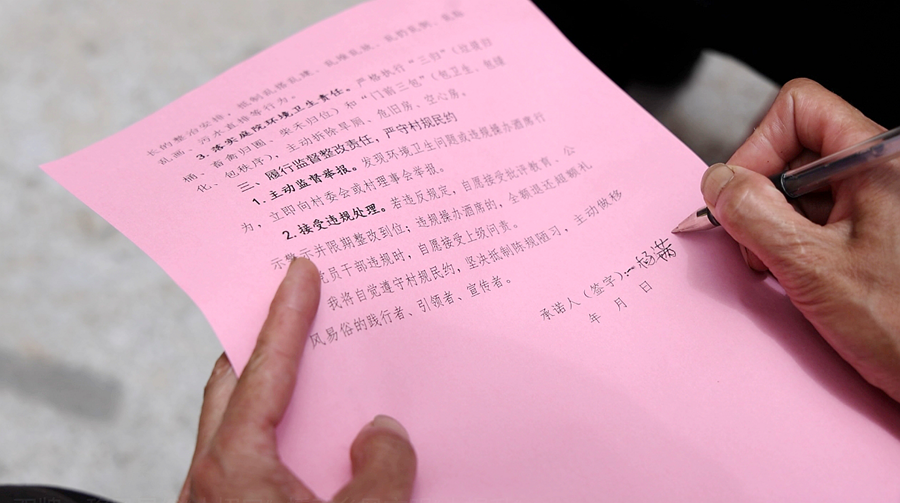 抵制乱搭乱建、乱堆乱放、乱扔乱倒、乱贴
乱画、污水直排等行为。
3.落实庭院环境卫生责任。严格执行“三归”(垃圾归
桶、畜禽归圈、柴禾归位)和“门前三包”(包卫生、包绿
化、包秩序),主动拆除旱厕、危旧房、空心房。
三、履行监督整改责任,严守村规民约
1.主动监督举报。发现环境卫生问题或违规操办酒席行
为,立即向村委会或村理事会举报。
2.接受违规处理。若违反规定,自愿接受批评教育、公
示警示并限期整改到位;违规操办酒席的,全额退还超额礼
党员干部违规时,自愿接受上级问责。
我将自觉遵守村规民约,坚决抵制陈规陋习,主动做移
风易俗的践行者、引领者、宣传者。
承诺人(签字):杨
年 月 日